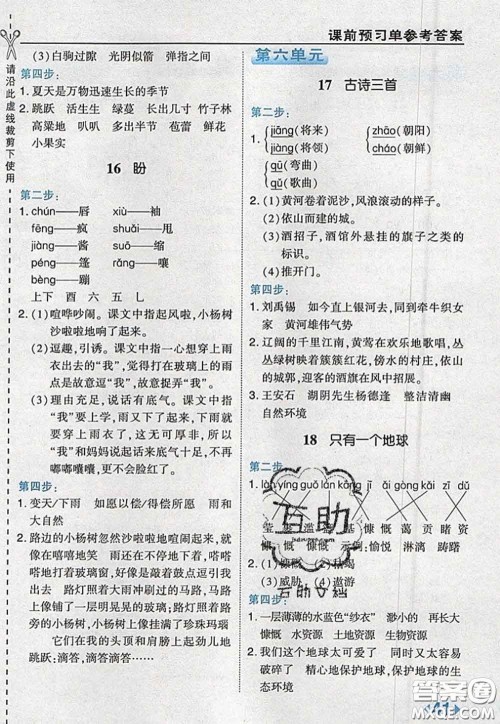 课前预习单参考答案
请沿此虚线裁剪下使用
(3)白驹过隙 光阴似箭 弹指之间
第四步:
1. 夏天是万物迅速生长的季节
2. 跳跃 活生生 绿蔓 长出几寸 竹子林
高粱地 叭叭 多出半节 苞蕾 鲜花
小果实
16 盼
第二步:
1. chún——唇 xiù——袖
fēng——疯 shuǎi——甩
jiàng——酱 suō——缩
péng——篷 rǎng——嚷
bèng——蹦
上下 酉 六 五 乚
2. (1)喧哗吵闹。课文中指起风啦,小杨树
沙啦啦地响了起来。
(2)逗趣,引诱。课文中指一心想穿上雨
衣出去的“我”,觉得打在玻璃上的雨
点是故意逗“我”,故意气“我”。
(3)理由充足,说话有底气。课文中指
“我”要上了雨衣,看到真的下雨了,
所以“我”这次说起话来底气十足,不
再嘟嘟囔囔,而是更兴奋。
第四步:
1. 变天/下雨 如愿以偿/得偿所愿 雨衣
和大自然
2. 路边的小杨树忽然沙啦啦地喧闹起来,
就像在嘻嘻地笑 雨点不停地下着,嗒
嗒地打着玻璃窗,好像是在逗我,嗒嗒
嗒 路灯照着大雨冲刷过的马路,马路
上像铺了一层明晃晃的玻璃 路灯照
着小杨树,小杨树上挂满了珍珠玛瑙
它们在我的头顶和肩膀上起劲儿地
跳跃:滴答,滴答滴答……
第六单元
17 古诗三首
第二步:
1. jiāng(将来) zhāo(朝阳)
jiàng(将领) cháo(朝鲜)
qū(弯曲)
qǔ(歌曲)
2. (1)黄河卷着泥沙,风浪滚动的样子。
(2)依山而建的城。
(3)酒招子,酒馆外悬挂的旗子之类的
标识。
(4)推开门。
第四步:
1. 刘禹锡 如今直上银河去,同到牵牛织女
家 黄河雄伟气势
2. 辽阔的千里江南,黄莺在欢乐地歌唱,丛
丛绿树映着簇簇红花,傍水的村庄,依山
的城郭,迎宾的酒旗在风中招展。
3. 王安石 湖阴先生杨德逢 整洁清幽
自然环境
18 只有一个地球
第二步:
慷慨 示例:愉悦 淋漓 踌躇
(3)威胁 (4)遨游
第四步:
1. 一层薄薄的水蓝色“纱衣” 渺小的 再
慷慨 水资源 土地资源 生物资源
2. 我们这个地球太可爱了,同时又太容易
破碎了 精心地保护地球,保护地球的生
态环境
互助
互助文档
41
答案圈
MXQE.COM